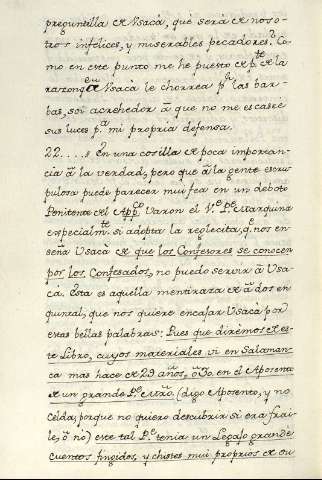 preguntilla de Usacà, què serà de noso-
tros infelices, y miserables pecadores? Co-
mo en este punto me he puesto de pte de la
razon q̃ a Usacà le chorrea pr las bar-
bas, soi acrehedor à que no me escasèe
sus luces pa mi propria defensa.
22....s En una cosilla de poca importan-
cia à la verdad, pero que à la gente escru-
pulosa puede parecer mui fea en un debote
Penitente del Appco Varon el Ve Pe Marquina
especialmte si adopta la reglecita, qe nos en-
seña Usacà de que los Confesores se conocen
por los Confesados, no puedo servir à Usa-
cà. Esta es aquella mentiraza de à dos en
quintal, que nos quiere encajar Usacà por
estas bellas palabras: Pues que dirèmos de es-
te Libro, cuyos materiales vi en Salaman-
ca mas hace de 29 años, en el Aposento
de un grande Pe Mro (digo Aposento, y no
Celda, porque no quiero descubrir si era frai-
le, ò no) este tal Pe tenia un Legajo grande
cuentos fingidos, y chistes mui proprios de su